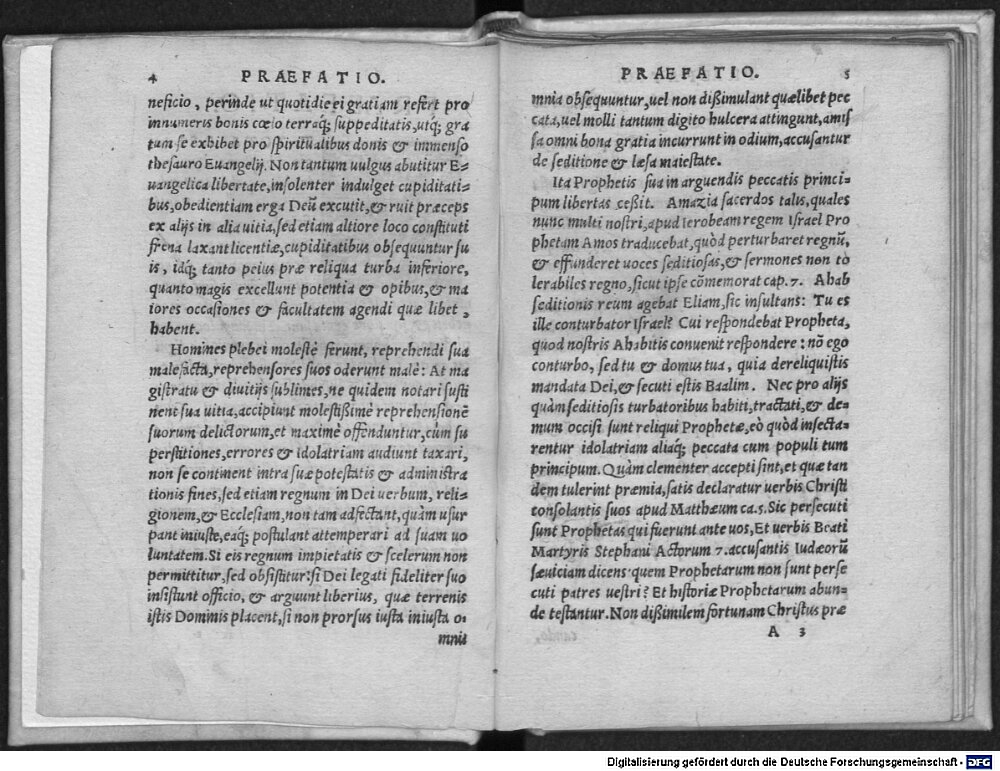 4 PRAEFATIO.
neficio, perinde ut quotidie ei gratiam refert pro
innumeris bonis cœlo terraq́; suppeditatis, utq́; gra
tum se exhibet pro spiritualibus donis & immenso
thesauro Euangelij. Non tantum uulgus abutitur E-
uangelica libertate, insolenter indulget cupiditati-
bus, obedientiam erga Deũ excutit, & ruit præceps
ex alijs in alia uitia, sed etiam altiore loco constituti
frena laxant licentiæ, cupiditatibus obsequuntur su
is, idq́; tanto peius præ reliqua turba inferiore,
quanto magis excellunt potentia & opibus, & ma
iores occasiones & facultatem agendi quæ libet,
habent.
Homines plebei molestè ferunt, reprehendi sua
malefacta, reprehensores suos oderunt malè: At ma
gistratu & diuitijs sublimes, ne quidem notari susti
nent sua uitia, accipiunt molestißimè reprehensionẽ
suorum delictorum, et maximè offenduntur, cùm su
perstitiones, errores & idolatriam audiunt taxari,
non se continent intra suæ potestatis & administra
tionis fines, sed etiam regnum in Dei uerbum, reli-
gionem, & Ecclesiam, non tam adfectant, quàm usur
pant iniuste, eaq́; postulant attemperari ad suam uo
luntatem. Si eis regnum impietatis & scelerum non
permittitur, sed obsistitur: si Dei legati fideliter suo
insistunt officio, & arguunt liberius, quæ terrenis
istis Dominis placent, si non prorsus iusta iniusta o-
mnia
PRAEFATIO. 5
mnia obsequuntur, uel non dißimulant quælibet pec
cata, uel molli tantum digito hulcera attingunt, amis
sa omni bona gratia incurrunt in odium, accusantur
de seditione & læsa maiestate.
Ita Prophetis sua in arguendis peccatis princi-
pum libertas ceßit. Amazia sacerdos talis, quales
nunc multi nostri, apud Ierobeam regem Israel Pro
phetam Amos traducebat, quòd perturbaret regnũ,
& effunderet uoces seditiosas, & sermones non to
lerabiles regno, sicut ipse cõmemorat cap. 7. Ahab
seditionis reum agebat Eliam, sic insultans: Tu es
ille conturbator Israel? Cui respondebat Propheta,
quod nostris Ahabitis conuenit respondere: nõ ego
conturbo, sed tu & domus tua, quia dereliquistis
mandata Dei, & secuti estis Baalim. Nec pro alijs
quàm seditiosis turbatoribus habiti, tractati, & de-
mum occisi sunt reliqui Prophetæ, eò quòd insecta-
rentur idolatriam aliaq́; peccata cum populi tum
principum. Quàm clementer accepti sint, et quæ tan
dem tulerint præmia, satis declaratur uerbis Christi
consolantis suos apud Matthæum ca. 5. Sic persecuti
sunt Prophetas qui fuerunt ante uos, Et uerbis Beati
Martyris Stephani Actorum 7. accusantis Iudæorũ
sæuiciam dicens: quem Prophetarum non sunt perse
cuti patres uestri? Et historiæ Prophetarum abun-
de testantur. Non dißimilem fortunam Christus præ
A 3
Digitalisierung gefördert durch die Deutsche Forschungsgemeinschaft - DFG